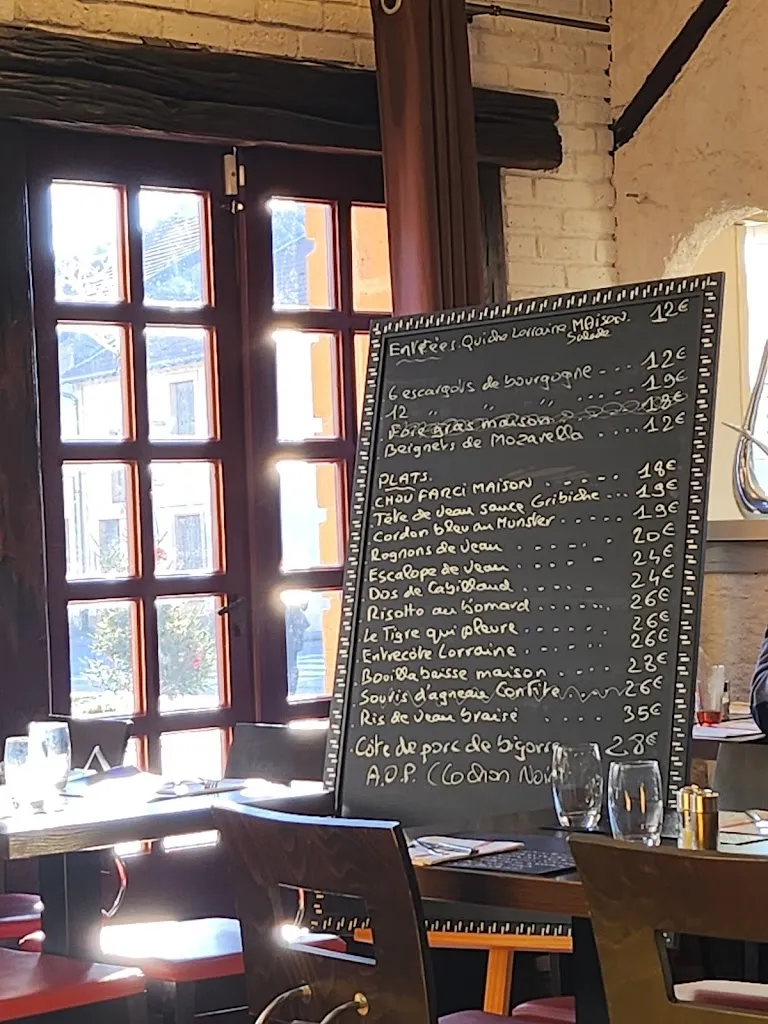 Entrées. Quiche Lorraine MAISON. 12€
Salade
6 escargots de bourgogne ... 12€
12 " " ..... 19€
Foie gras maison 18€
Beignets de Mozarella .... 12€
PLATS.
CHOU FARCI MAISON 18€
Tête de veau sauce Gribiche ... 19€
Cordon bleu au Munster ... 19€
Rognons de veau ..... 20€
Escalope de veau .... 24€
Dos de Cabillaud .... 24€
Risotto au homard ..... 26€
Le Tigre qui pleure .... 26€
Entrecôte Lorraine .... 26€
Bouillabaisse maison .... 28€
Souris d'agneau Confite 26€
Ris de veau braisé .... 35€
Côte de porc de bigorre 28€
A.O.P. (Cochon Noir